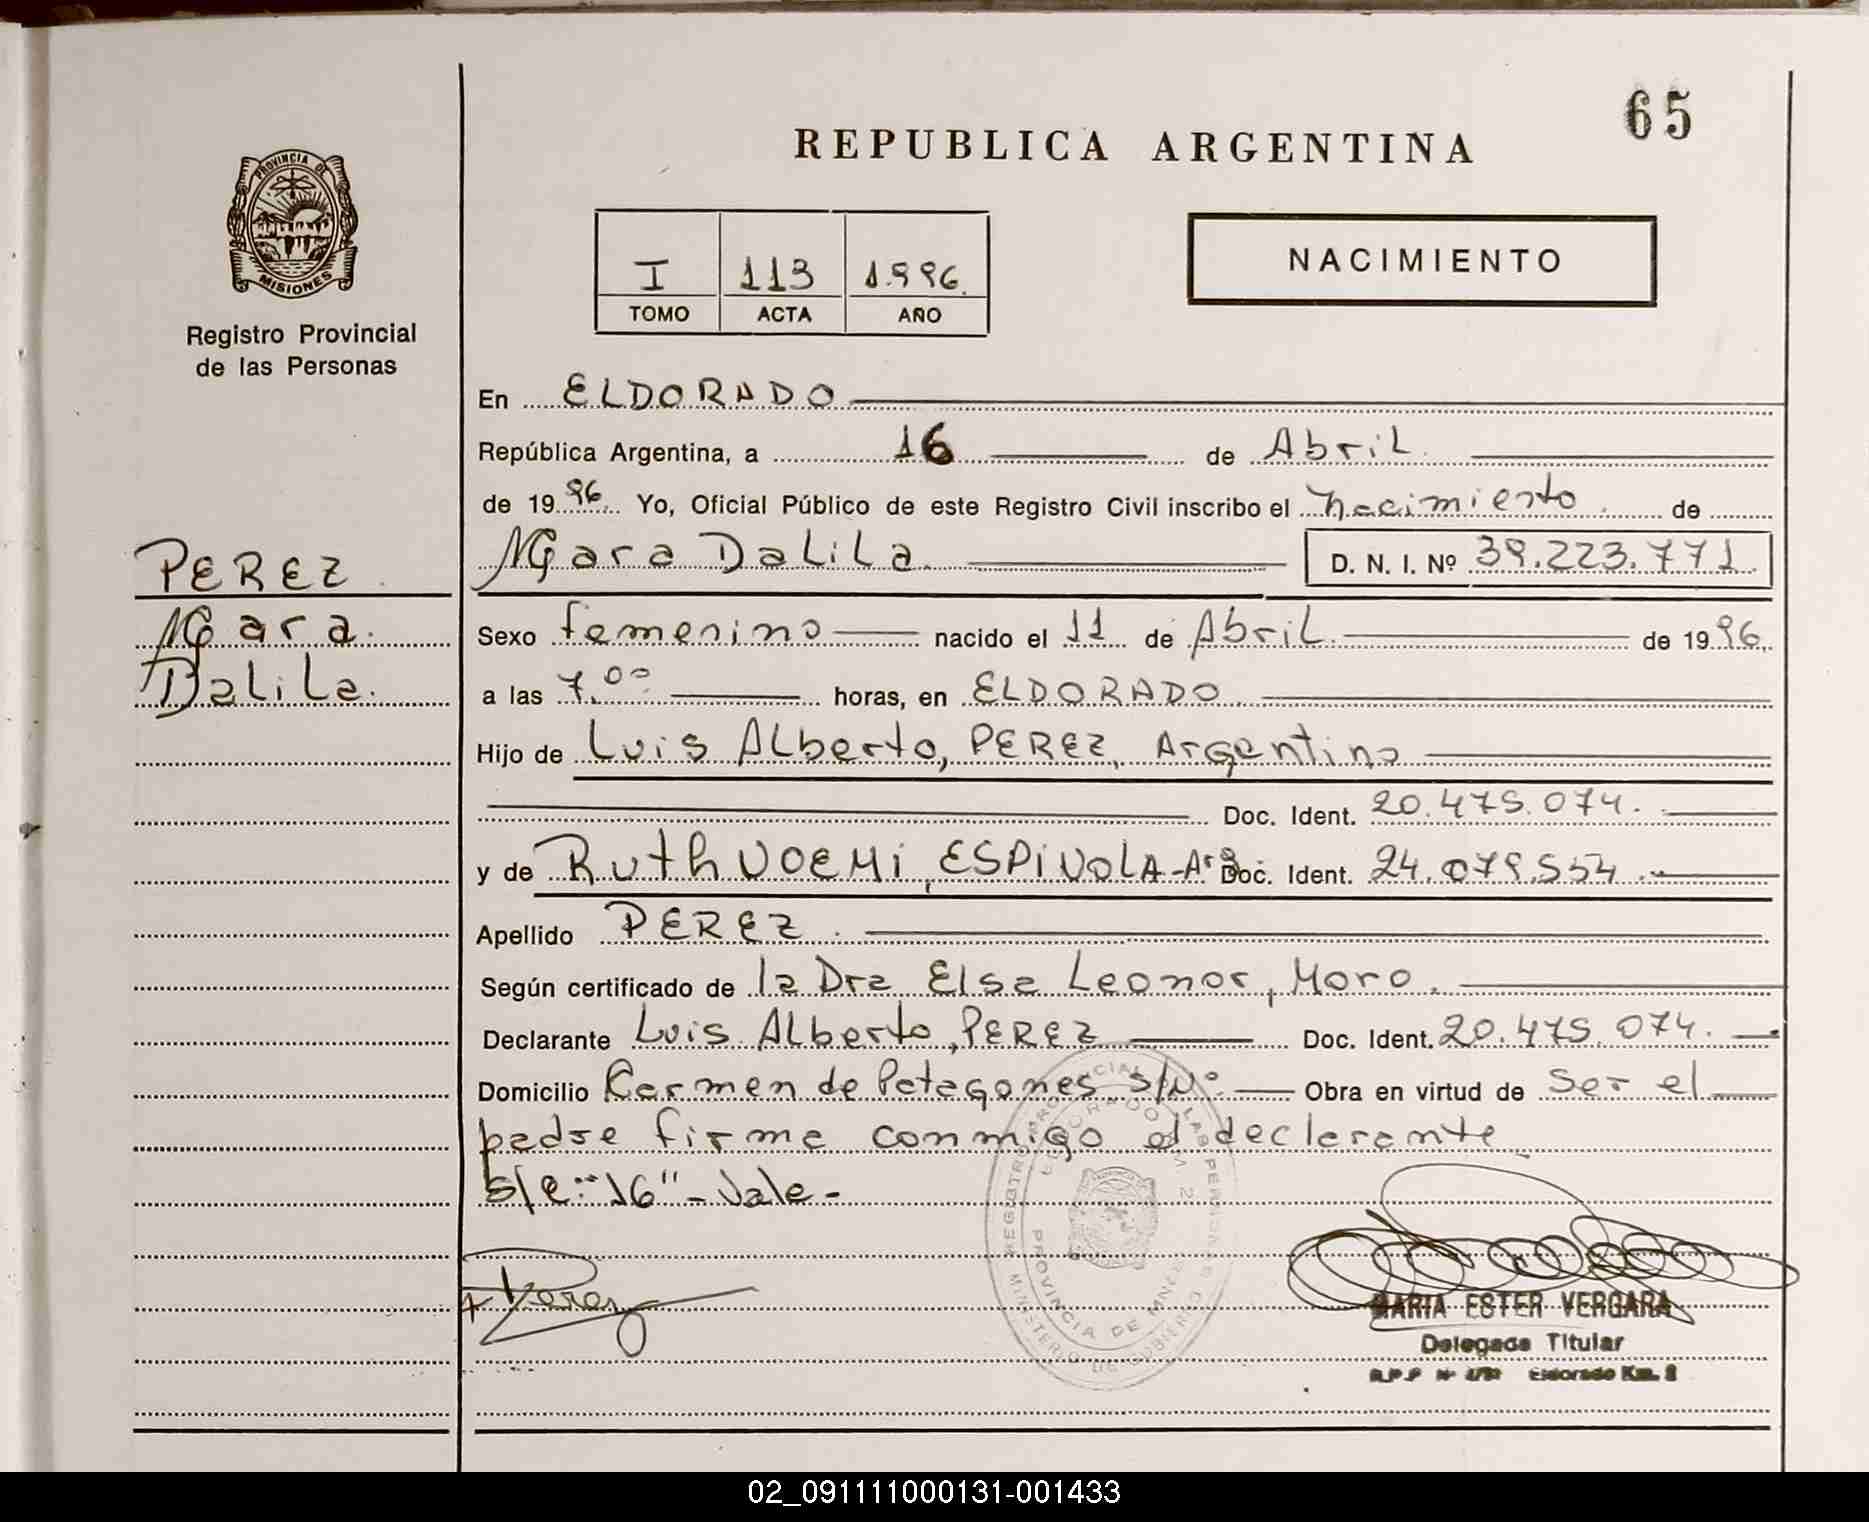 65
REPUBLICA ARGENTINA
PROVINCIA DE
MISIONES
Registro Provincial
de las Personas
I 113 1.996.
TOMO ACTA AÑO
NACIMIENTO
En ELDORADO
República Argentina, a 16 de Abril
de 1996. Yo, Oficial Público de este Registro Civil inscribo el nacimiento de
Mara Dalila. D. N. I. Nº 39.223.771
PEREZ
Mara
Dalila.
Sexo femenino nacido el 11 de Abril. de 1996.
a las 7.00 horas, en ELDORADO
Hijo de Luis Alberto, PEREZ, Argentino
Doc. Ident. 20.475.074.
y de Ruth NOEMi, ESPiNOLA-Arg Doc. Ident. 24.079.554
Apellido PEREZ.
Según certificado de la Dra Elsa Leonor, Moro.
Declarante Luis Alberto, PEREZ Doc. Ident. 20.475.074.
Domicilio Carmen de Patagones S/Nº Obra en virtud de ser el
padre firma conmigo el declarante
S/R: "16" - Vale -
Perez
MARIA ESTER VERGARA
Delegada Titular
Eldorado Km. 2
02_091111000131-001433